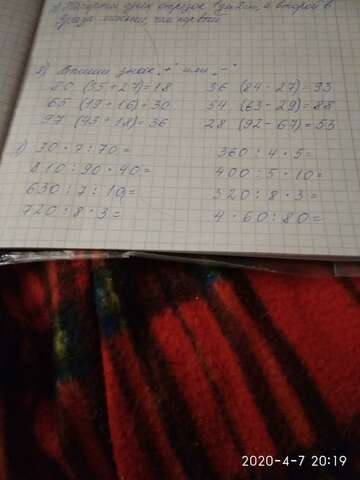 Начерти один отрезок 1дм2см, а второй в
раза меньше, чем первый.
2) Впиши знак "+" или "–"
80 (35+27)=18
36 (84-27)=93
65 (19+16)=30
54 (63-29)=88
97 (43+18)=36
28 (92-67)=53
30·7:70=
360:4·5=
810:90·40=
400:5·10=
630:7:10=
320:8·3=
720:8·3=
4·60:80=
2020-4-7 20:19